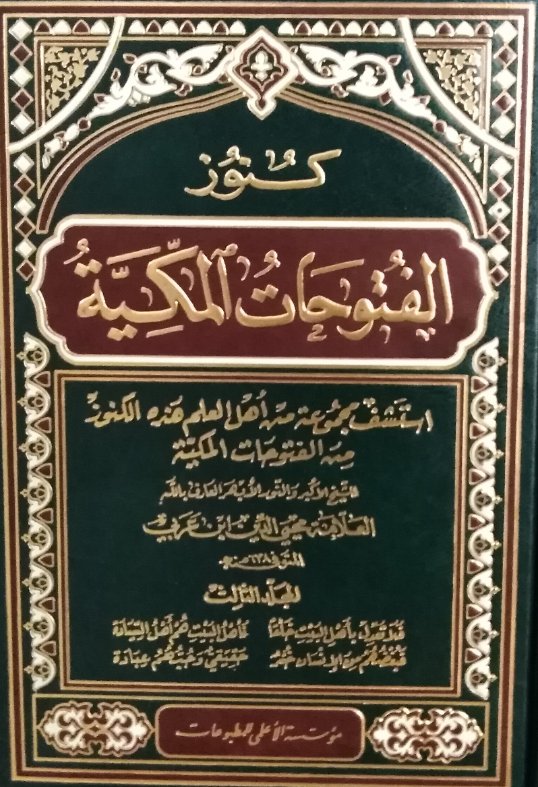 كُنُوز
الفُتُوحَاتُ المَكِّيَّةُ
استشف مجموعة من أهل العلم هذه الكنوز
من الفتوحات المكية
للشيخ الأكبر والنور الأبهر العارف بالله
العلامة محيي الدين ابن عربي
المتوفى ٦٣٨ هـ
المجلد الثالث
فلا تعدل بأهل البيت خلقاً فأهل البيت هم أهل السيادة
فبغضهم من الإنسان خسر حقيقي وحبهم عبادة
مؤسسة الأعلمي للمطبوعات